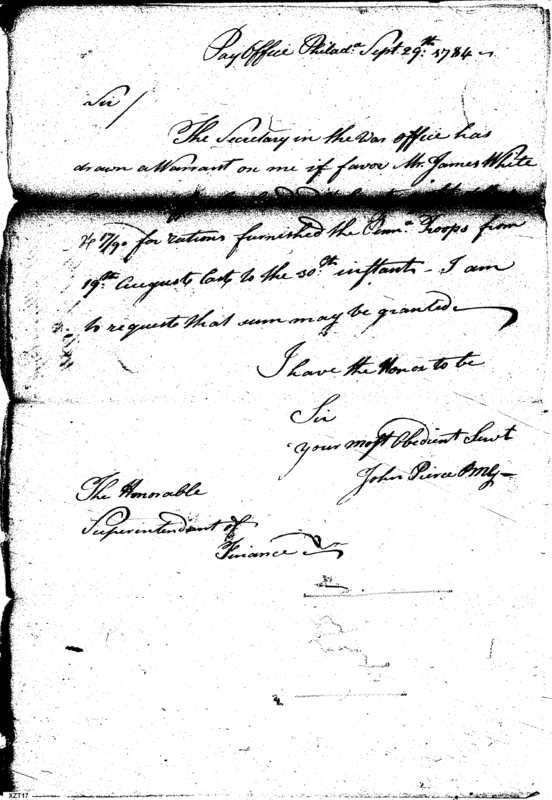 Pay Office Philada. Sept. 29th. 1784
Sir/
The Secretary in the War office has
drawn a Warrant on me if favor Mr. James White
17/90 for rations furnished the Penna. Troops from
19th August last to the 30th. instant - I am
to request that sum may be granted
I have the Honor to be
Sir
your most Obedient Servt
John Pierce PMG
The Honorable
Superintendant of
Finance
XZT17